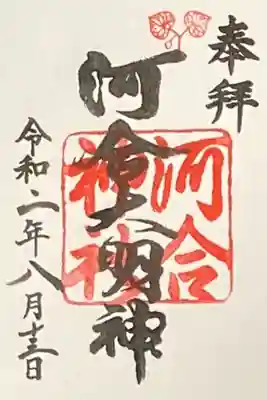 奉拝
河合神社
河合明神
令和二年八月十三日